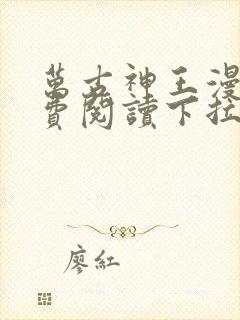 萬古神王漫
費閱讀下拉
廖紅